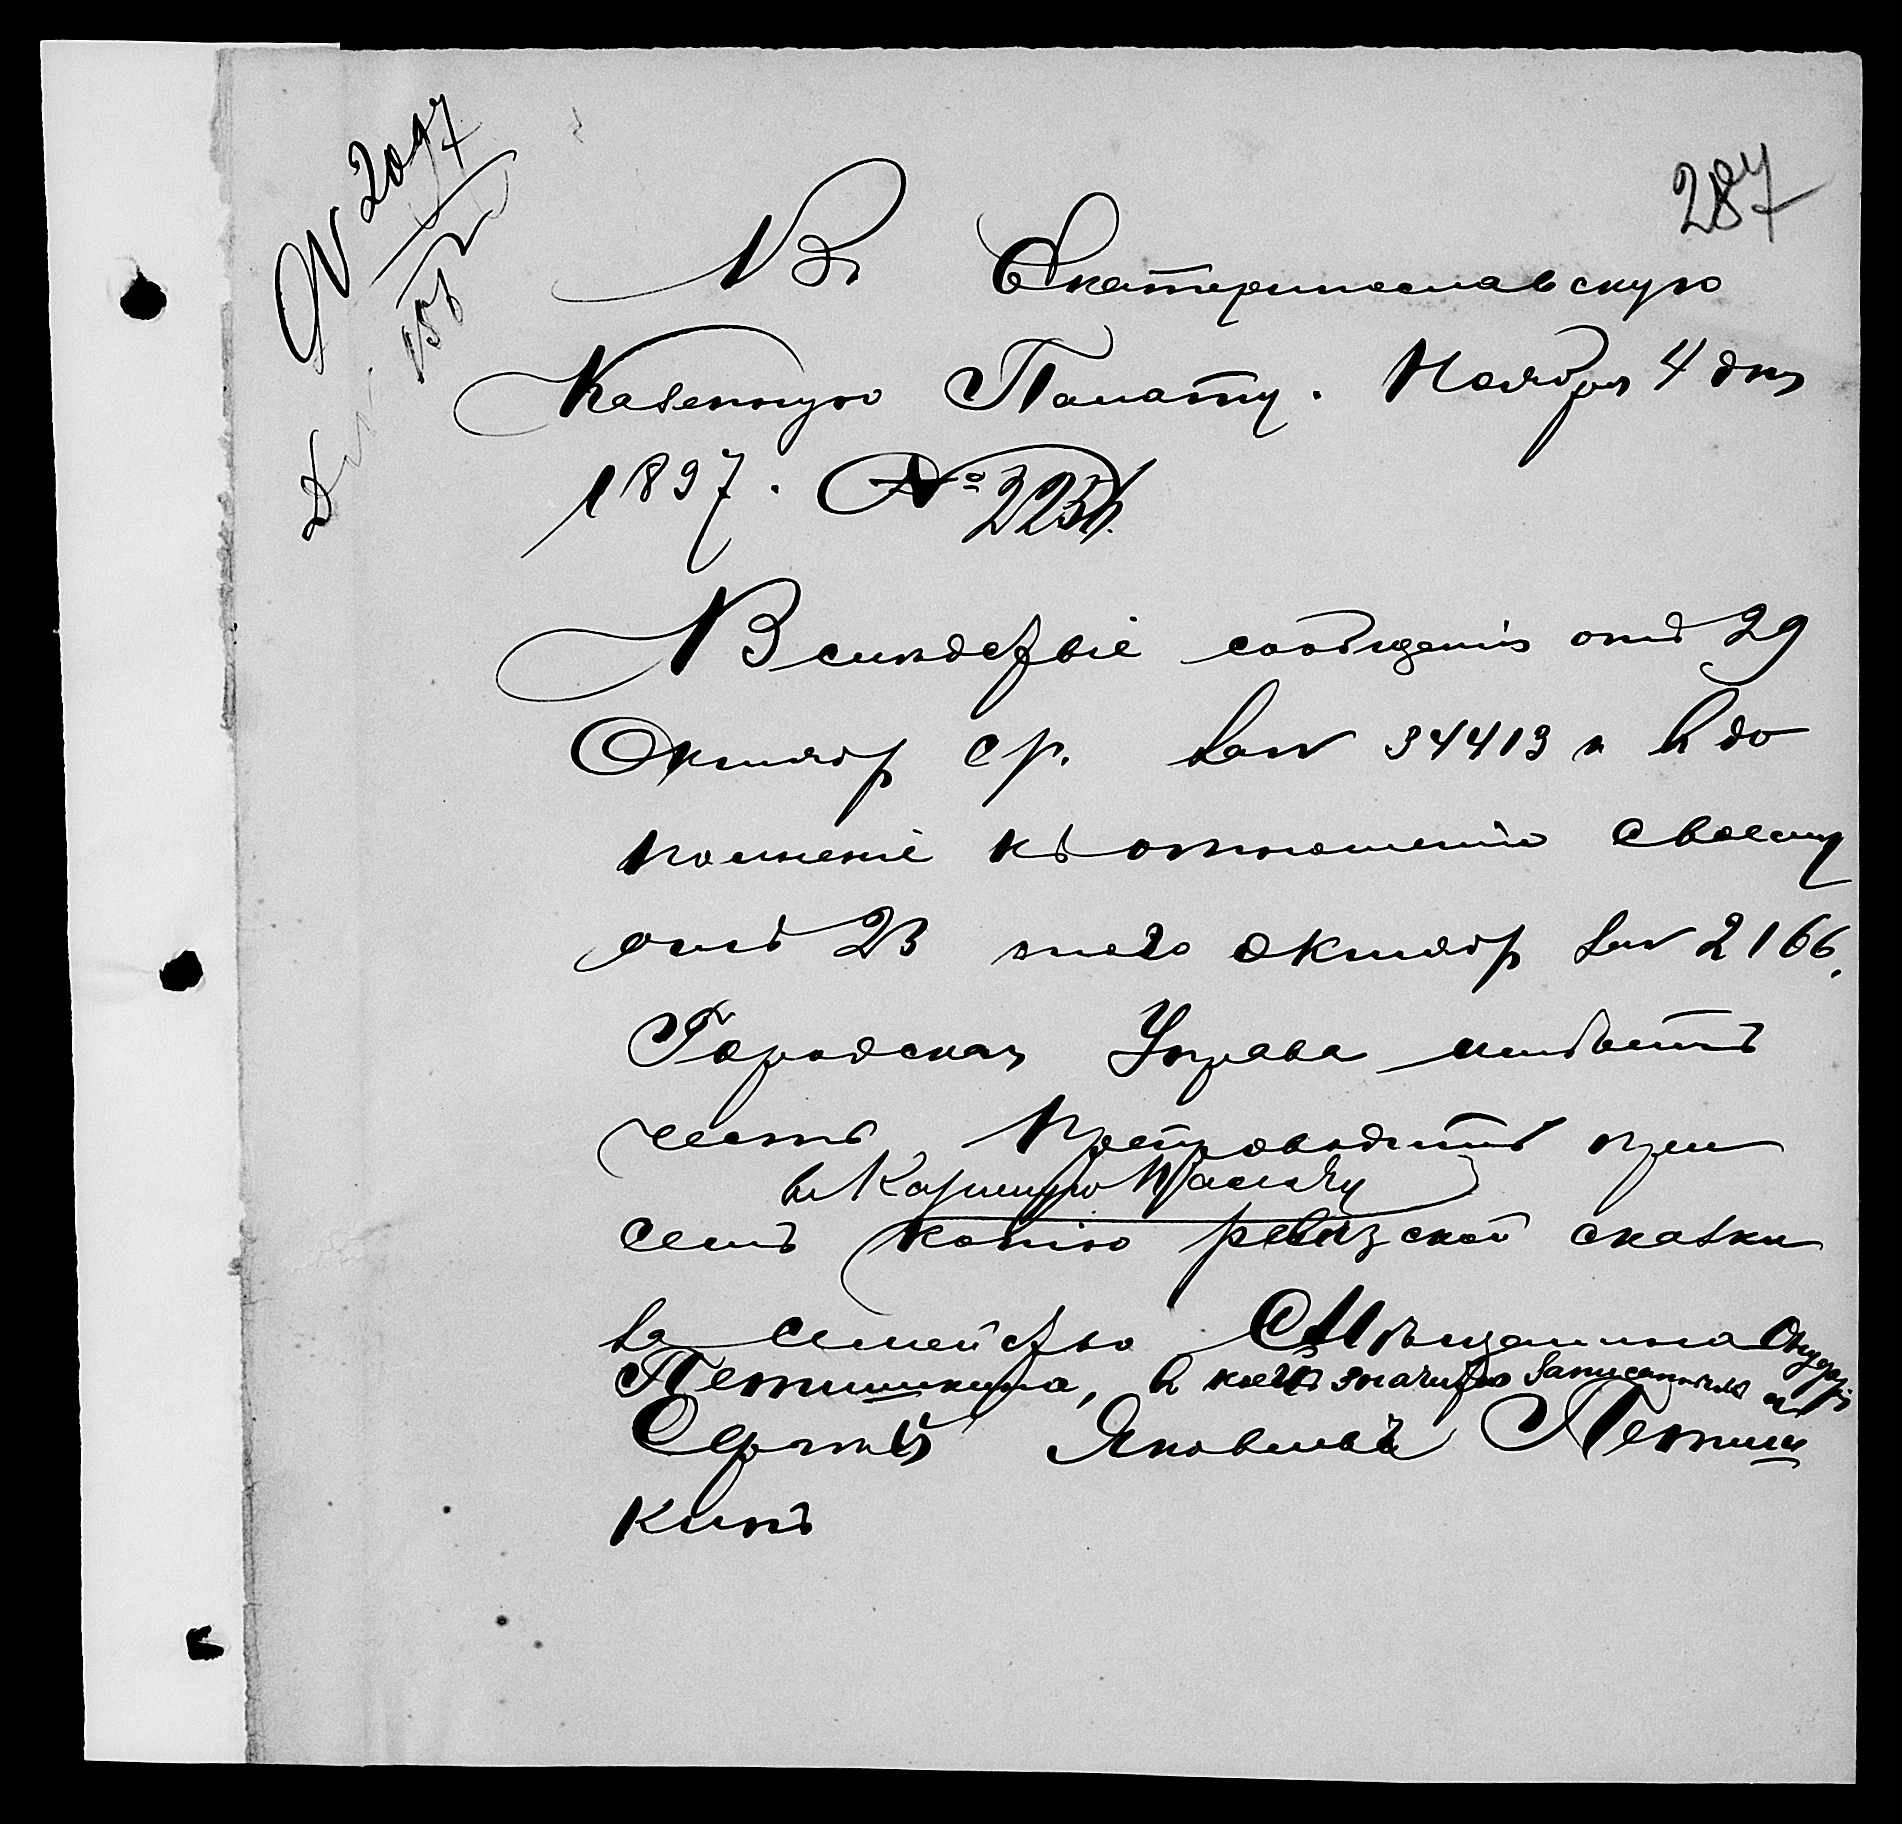 № 2097
287
Въ Екатеринославскую
Казенную Палату. Ноября 4 дня
1897. №
Вслѣдствіе сообщенія отъ 29
Октябр с/г. за № 34413 и в до
полненіе къ отношенію своему
отъ 23 того октябр за № 2166,
Городская Управа имѣетъ
честь препроводить при
въ Казенную Палату
семъ копію ревизской сказки
за семейство Мѣщанина
Петишкина, в коей значится записаннымъ и
Сергѣй Яковлевъ Петиш
кинъ